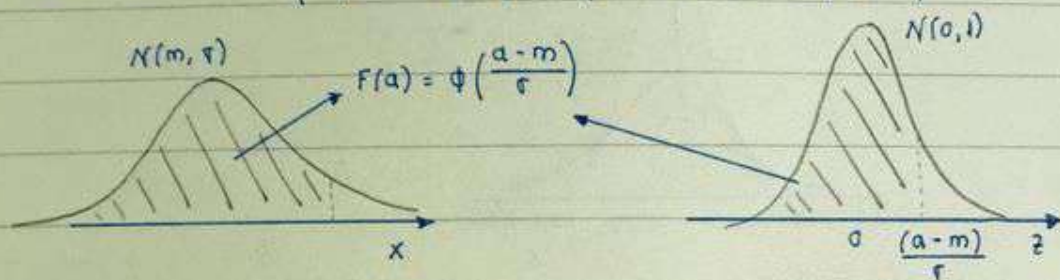 N(m, σ)
F(a) = φ((a - m)/σ)
N(0,1)
x
0
(a - m)/σ
z